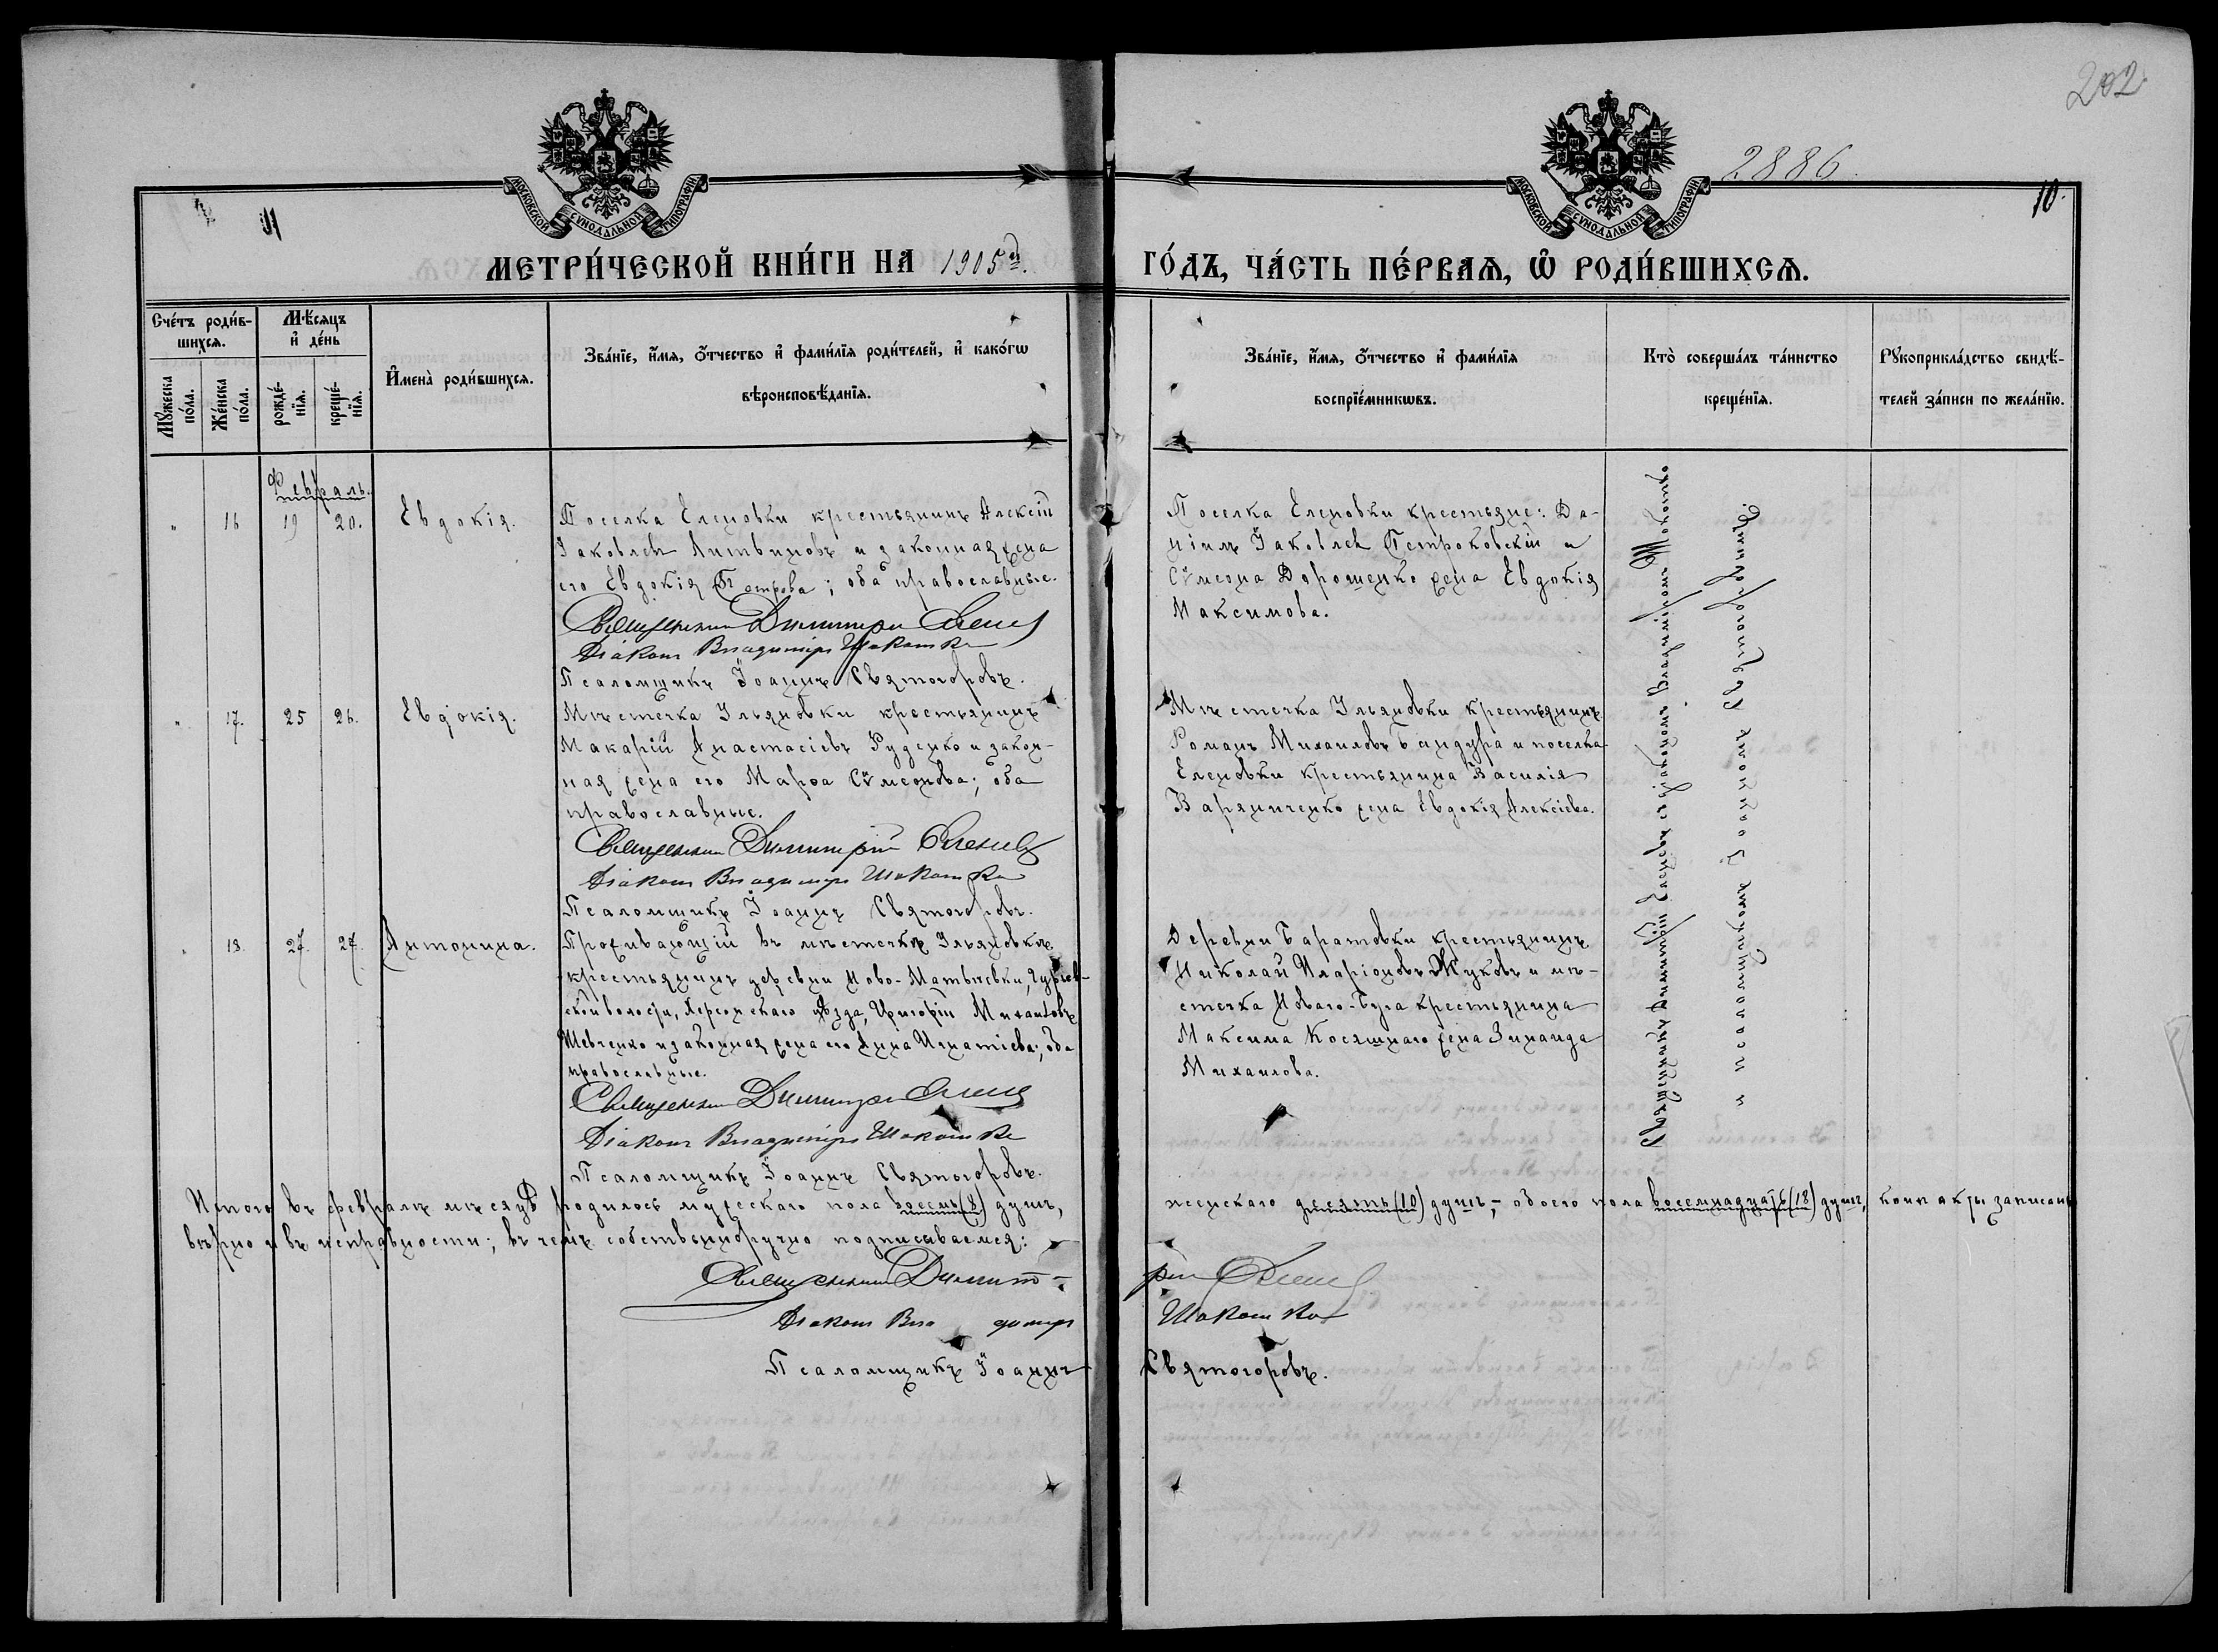 202
2886
11
10.
МОСКОВСКОЙ СѴНОДАЛЬНОЙ ТИПОГРАФІИ
МОСКОВСКОЙ СѴНОДАЛЬНОЙ ТИПОГРАФІИ
МЕТРИ́ЧЕСКОЙ КНИ́ГИ НА 1905й.
ГО́ДЪ, ЧА́СТЬ ПЕ́РВАѦ, Ѡ РОДИ́ВШИХСѦ.
Сче́тъ роди́в-
шихсѧ.
Мѣ́сѧцъ
и҆ де́нь
Мꙋ́жеска
по́ла.
Же́нска
по́ла.
рожде́-
нїѧ.
креще́-
нїѧ.
И҆мена̀ роди́вшихсѧ.
Зва́нїе, и҆́мѧ, ѻ҆́тчество и҆ фамѝлїѧ роди́телей, и҆ како́гѡ
вѣроисповѣ́данїѧ.
Зва́нїе, и҆́мѧ, ѻ҆́тчество и҆ фамѝлїѧ
воспрїе́мникѡвъ.
Кто̀ соверша́лъ та́инство
креще́нїѧ.
Рꙋкоприкла́дство свидѣ́-
телей за́писи по жела́нїю.
Февраль.
" 16 19 20. Евдокія.
Поселка Еленовки крестьянинъ Алексій
Іаковлевъ Литвиновъ и законная жена
его Евдокія Петрова; оба православные.
Священникъ Димитрій Еленевъ
Діаконъ Владиміръ Шокотько
Псаломщикъ Іоаннъ Святогоровъ.
Поселка Еленовки крестьяне: Да-
ніилъ Іаковлевъ Петроковскій и
Сѵмеона Дорошенко жена Евдокія
Максимова.
" 17. 25 26. Евдокія.
Мѣстечка Ульяновки крестьянинъ
Макарій Анастасіевъ Руденко и закон-
ная жена его Марѳа Сѵмеонова; оба
православные.
Священникъ Димитрій Еленевъ
Діаконъ Владиміръ Шокотько
Псаломщикъ Іоаннъ Святогоровъ.
Мѣстечка Ульяновки крестьянинъ
Романъ Михаиловъ Бандура и поселка
Еленовки крестьянина Василія
Варяниченко жена Евдокія Алексіева.
" 18 27. 27. Антонина.
Проживающій въ мѣстечкѣ Ульяновкѣ
крестьянинъ деревни Ново-Матвѣевки,
ской волости, Херсонскаго уѣзда, Григорій Михаиловъ
Шевченко и законная жена его Анна Игнатіева; оба
православные.
Священникъ Димитрій Еленевъ
Діаконъ Владиміръ Шокотько
Псаломщикъ Іоаннъ Святогоровъ.
Деревни Баратовки крестьянинъ
Николай Иларіоновъ Жуковъ и мѣ-
стечка Новаго-Буга крестьянина
Максима Косяшнаго жена Зинаида
Михаилова.
Священникъ Димитрій Еленевъ съ діакономъ Владиміромъ Шокотько
и псаломщикомъ Іоанномъ Святогоровымъ.
Итого въ февралѣ мѣсяцѣ родилось мужескаго пола восемь (8) душъ,
женскаго десять (10) душъ,- обоего пола восемнадцать (18) душъ, кои и акты записаны
вѣрно и въ исправности; въ чемъ собственноручно подписываемся:
Священникъ Димитрій Еленевъ
Діаконъ Владиміръ Шокотько
Псаломщикъ Іоаннъ Святогоровъ.